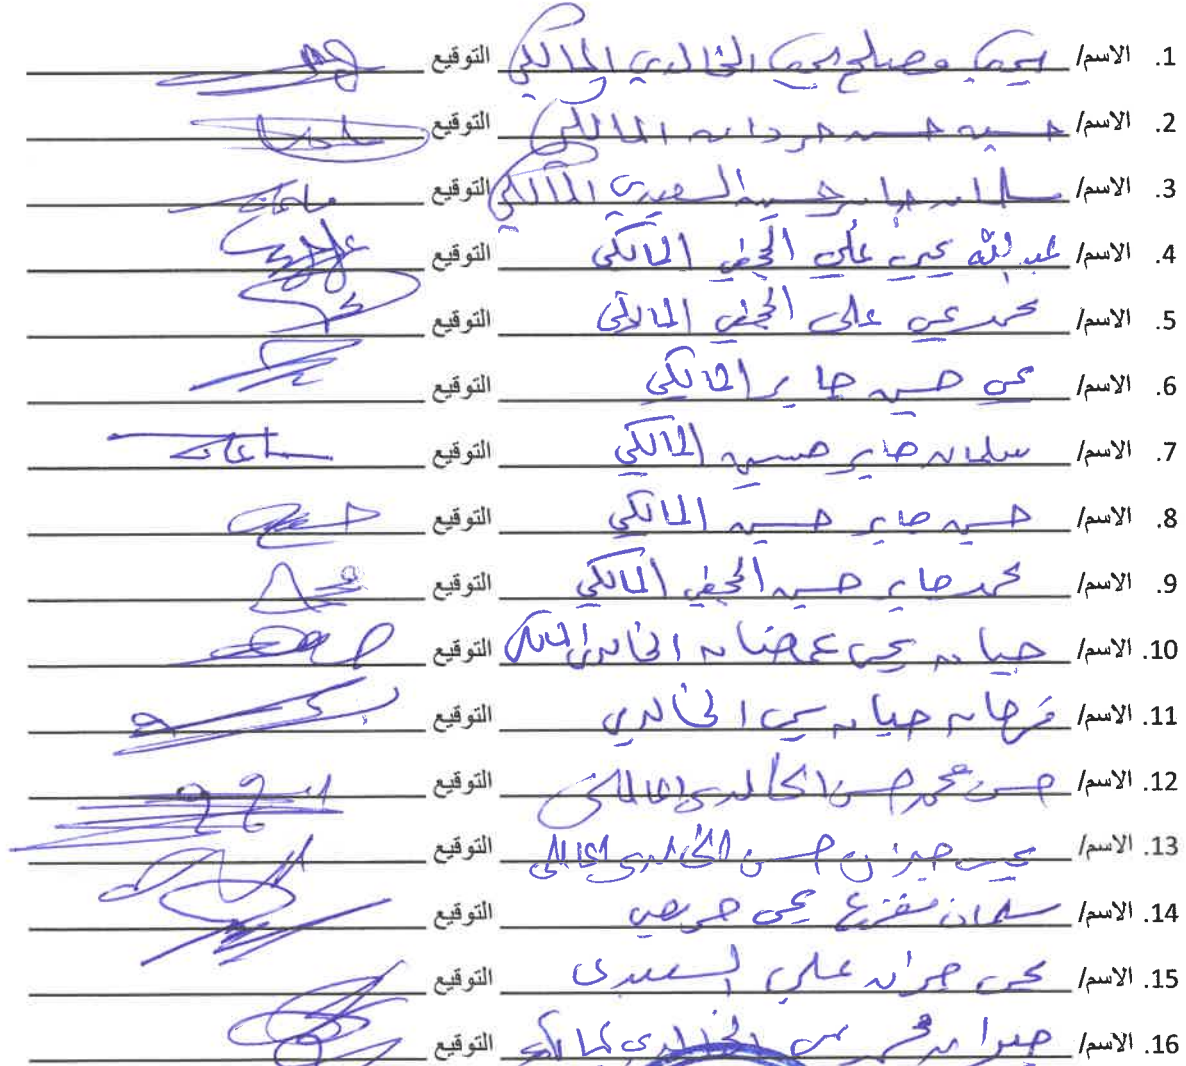 1. الاسم/ يحي مصلح يحي الخالدي المالكي التوقيع
2. الاسم/ حسين حسن المالكي التوقيع
3. الاسم/ سلمان جابر حسين السعيدي المالكي التوقيع
4. الاسم/ عبدالله يحي علي الحجفي المالكي التوقيع
5. الاسم/ محمد يحي علي الحجفي المالكي التوقيع
6. الاسم/ يحي حسين جابر المالكي التوقيع
7. الاسم/ سلمان جابر حسين المالكي التوقيع
8. الاسم/ حسين جابر حسين المالكي التوقيع
9. الاسم/ محمد جابر حسين الحجفي المالكي التوقيع
10. الاسم/ يحي الخالدي المالكي التوقيع
11. الاسم/ فرحان يحي الخالدي التوقيع
12. الاسم/ حسن محمد حسن الخالدي المالكي التوقيع
13. الاسم/ يحي جبران حسن الخالدي المالكي التوقيع
14. الاسم/ سلمان مفزع يحي التوقيع
15. الاسم/ يحي جبران علي السعيدي التوقيع
16. الاسم/ جبران الخالدي المالكي التوقيع